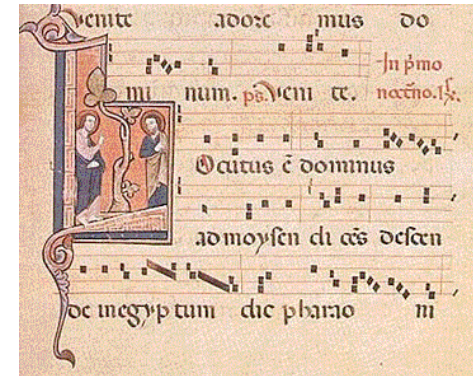 Venite adore mus do
In p̄mo
mi num. ps. Veni te. noct̄no. ℟.
L Ocutus ē dominus
ad moysen di cēs descen
de in egyp tum dic pharao ni